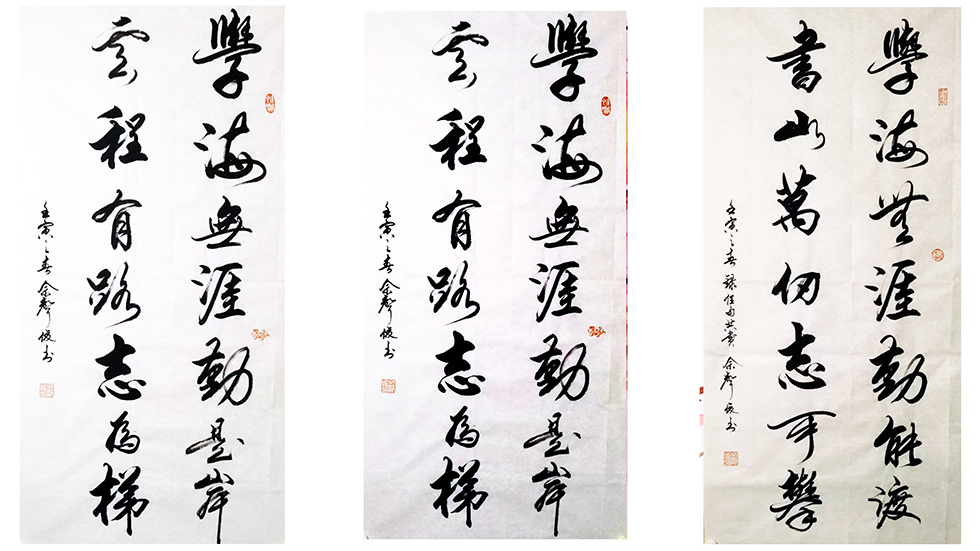 學海無涯勤是岸
雲程有路志為梯
壬寅之春 余 书
學海無涯勤是岸
雲程有路志為梯
壬寅之春 余 书
學海無涯勤能渡
書山萬仞志可攀
壬寅之春 錄佳句共賞 余 书